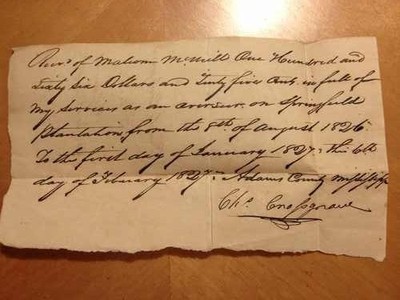 Recd of Malcom McMill One Hundred and
Sixty Six Dollars and Twenty five Cents in full of
my services as an overseer on Springfield
Plantation from the 8th of August 1826
To the first day of January 1827 this 6th
day of February 1827 Adams County Mississippi
Chs.